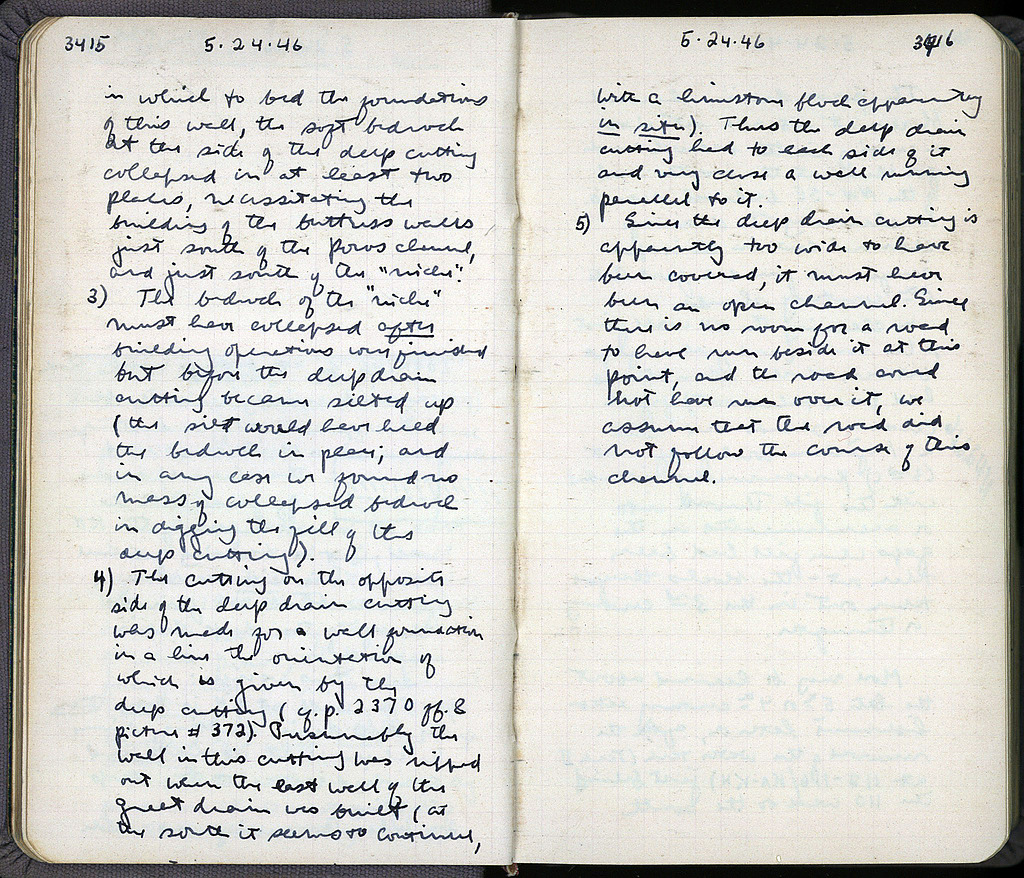 3415 5.24.46
in which to bed the foundations
of this wall, the soft bedrock
at the side of the deep cutting
collapsed in at least two
places, necessitating the
building of the buttress walls
just south of the Poros channel,
and just south of the "niche".
3) The bedrock of the "niche"
must have collapsed after
building operations were finished
but before the deep drain
cutting became silted up
(the silt would have held
the bedrock in place; and
in any case we found no
mass of collapsed bedrock
in digging the fill of the
deep cutting).
4) The cutting on the opposite
side of the deep drain cutting
was made for a wall foundation
in a line the orientation of
which is given by the
deep cutting (cf. p. 2370 ff. &
picture # 372). Presumably the
wall in this cutting was ripped
out when the east wall of the
great drain was built (at
the south it seems to continue,
5.24.46 3416
with a limestone block apparently
in situ). Thus the deep drain
cutting had to each side of it
and very close a wall running
parallel to it.
5) Since the deep drain cutting is
apparently too wide to have
been covered, it must have
been an open channel. Since
there is no room for a road
to have run beside it at this
point, and the road could
not have run over it, we
assume that the road did
not follow the course of this
channel.